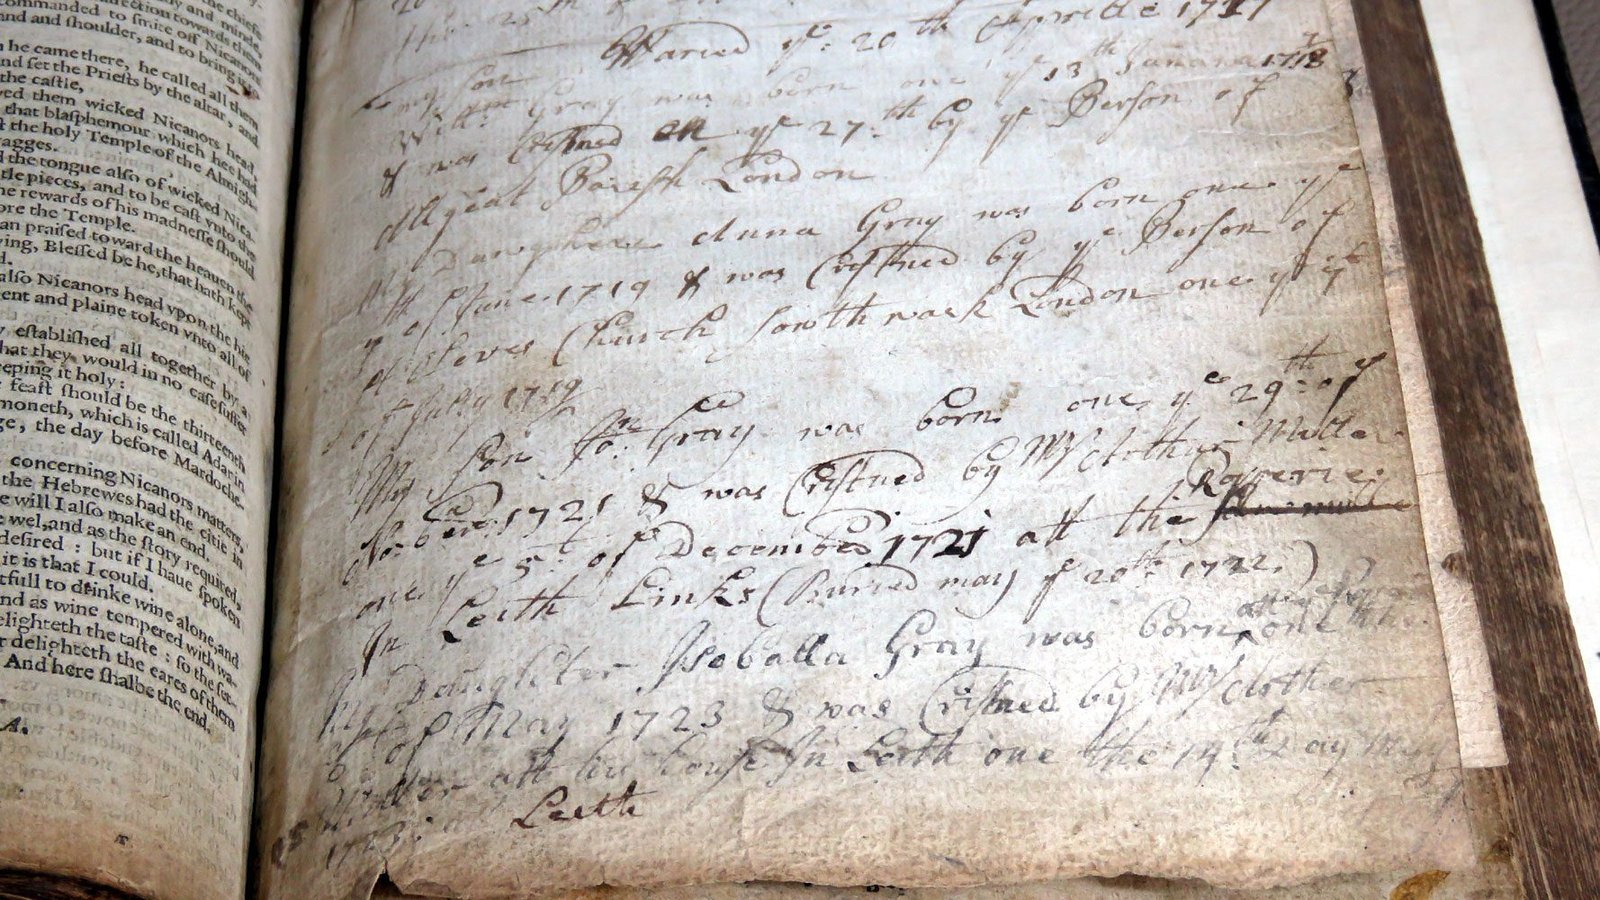 commanded to smite off Nicanors
and shoulder, and to bring
he came there, he called all them
and set the Priests by the altar, and
the castle,
wed them wicked Nicanors head,
that blasphemour which hee had
the holy Temple of the Almigh-
agges.
the tongue also of wicked Nica-
tle pieces, and to be cast vnto the
he rewards of his madnesse should
ore the Temple.
an praised toward the heauen the
ying, Blessed be he, that hath kept
d.
also Nicanors head vpon the hie
ent and plaine token vnto all of
y established all together by a
hat they would in no case suffer
eeping it holy:
feast should be the thirteenth
moneth, which is called Adar in
ge, the day before Mardoche-
concerning Nicanors matters,
the Hebrewes had the citie in
e will I also make an end.
e wel, and as the story required,
desired: but if I haue spoken
it is that I could.
tfull to drinke wine alone, and
nd as wine tempered with wa-
elighteth the taste: so the set-
r delighteth the eares of them
And here shalbe the end.
A.
Maried ye 20th Aprille 1717
my Son
Willm Gray was born one ye 13th January 1718
& was Cristned on ye 27th by ye Person of
Allgeat Parish London
My Daughter Anna Gray was born one ye
of June 1719 & was Cristned by ye Person of
Church Southwark London one ye
of July 1719
My Son Jon Gray was born one ye 29th of
Nober 1721 & was Cristned by Mr Arthur Miller
one ye 5t of December 1721 att the Roperie
In Leith Links (Buried may ye 20th 1722)
My Daughter Isoballa Gray was born one the
6 of May 1723 & was Cristned by Mr Arther
Miller att his house In Leith one the 14th Day May
1723
Leith